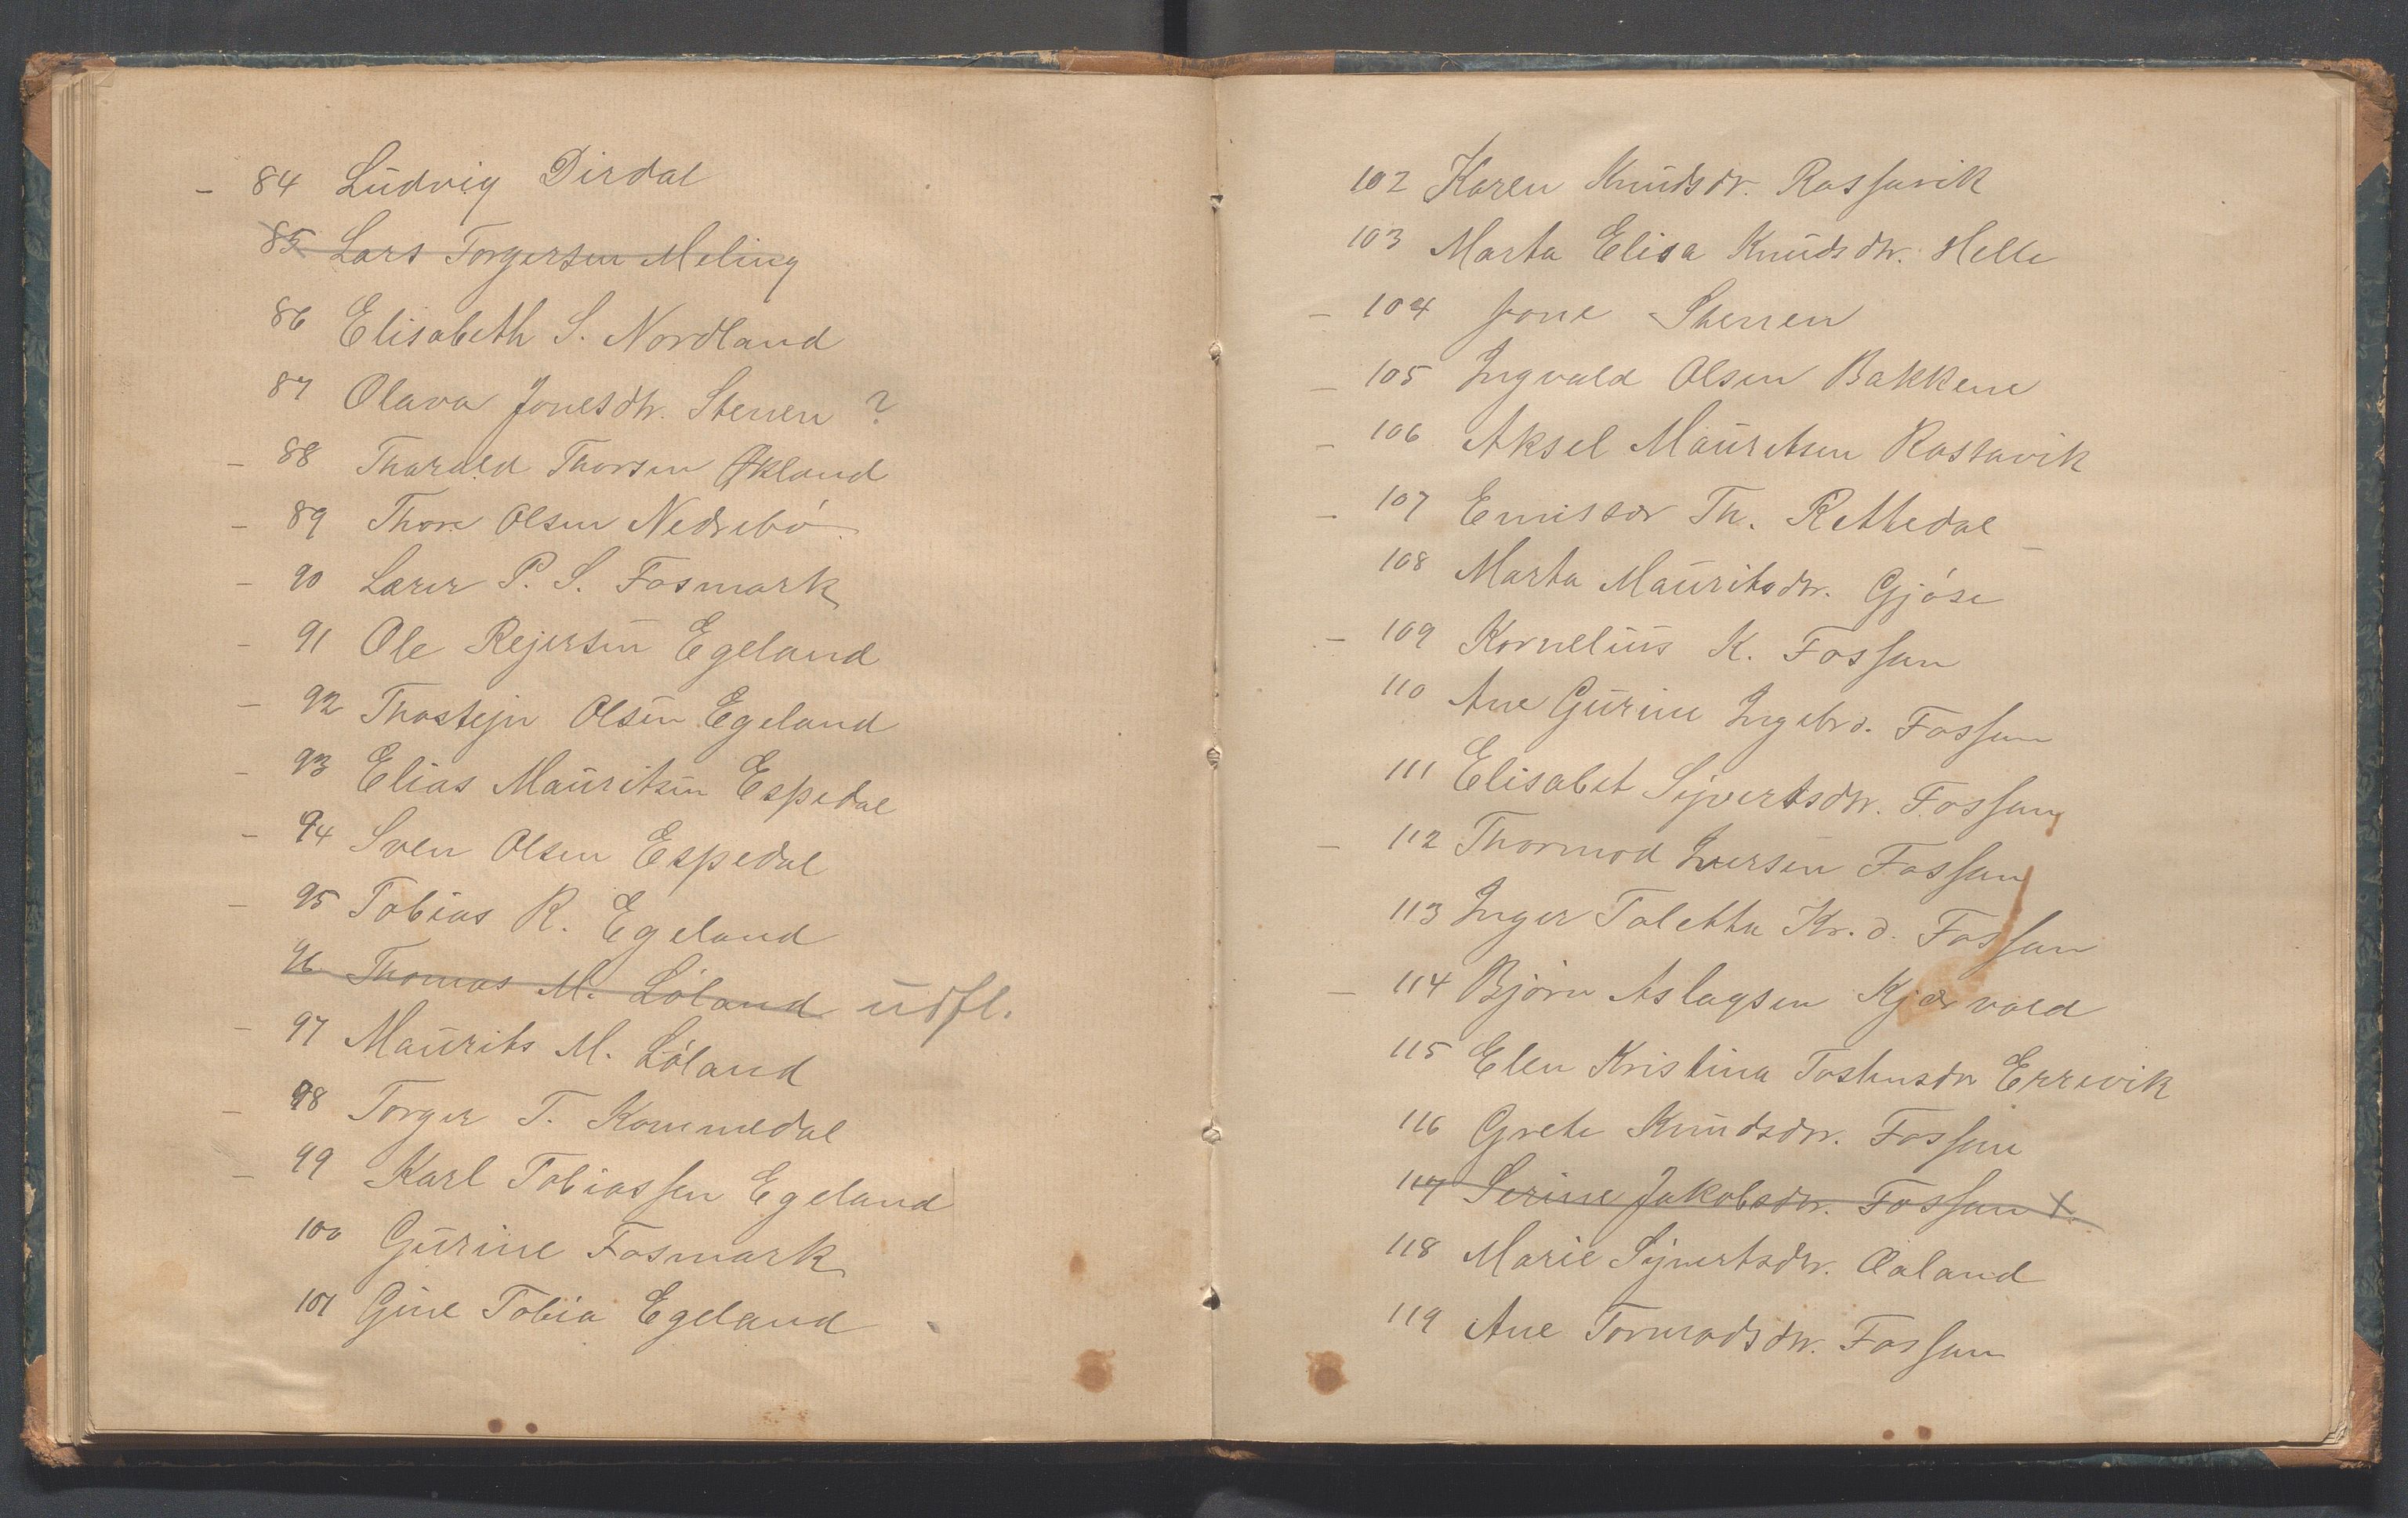 - 84 Ludvig Dirdal
85 Lars Torgersen Meling
86 Elisabeth S. Nordland
87 Olava Jonesdtr. Stenen ?
- 88 Tharald Thorsen Økland
- 89 Thore Olsen Nedrebó
- 90 Lærer P. S. Fosmark
- 91 Ole Rejersen Egeland
- 92 Thostejn Olsen Egeland
- 93 Elias Mauritsen Espedal
- 94 Sven Olsen Espedal
- 95 Tobias R. Egeland
96 Thomas M. Lóland udfl.
- 97 Maurits M. Lóland
- 98 Torger T. Kommedal
- 99 Karl Tobiassen Egeland
100 Gurine Fosmark
101 Gine Tobia Egeland
102 Karen Knudsdtr. Rossavik
103 Marta Elisa Knudsdtr. Helle
- 104 Jone Stenen
- 105 Ingvald Olsen Bakkene
- 106 Aksel Mauritsen Rossavik
- 107 Emissær Th. Rettedal
108 Marta Mauritsdtr. Gjóse
- 109 Kornelius K. Fossan
110 Ane Gurine Ingebr.d. Fossan
111 Elisabet Sijvertsdtr. Fossan
- 112 Thormod Iversen Fossan
113 Inger Taletta Kr.d. Fossan
- 114 Bjórn Aslagsen Kjærvold
115 Elen Kristina Tostensdtr Errevik
116 Grete Knudsdtr. Fossan
117 Serine Jakobsdtr. Fossan X
118 Marie Sijvertsdtr. Øaland
119 Ane Tormodsdtr. Fossan